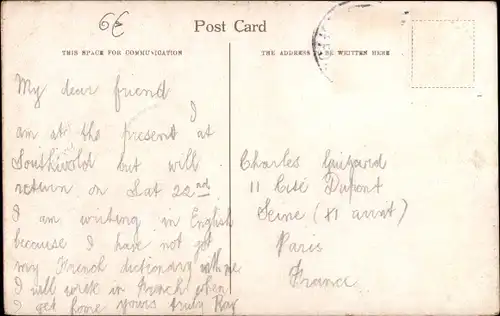 6€
Post Card
THIS SPACE FOR COMMUNICATION
THE ADDRESS BE WRITTEN HERE
My dear friend
I
am at the present at
Southwold but will
return on Sat 22nd
I am writing in English
because I have not got
my French dictionary with me
I will write in French when
I get home yours truly Ray
Charles Guigard
11 Cité Dupont
Seine (XI arrit)
Paris
France